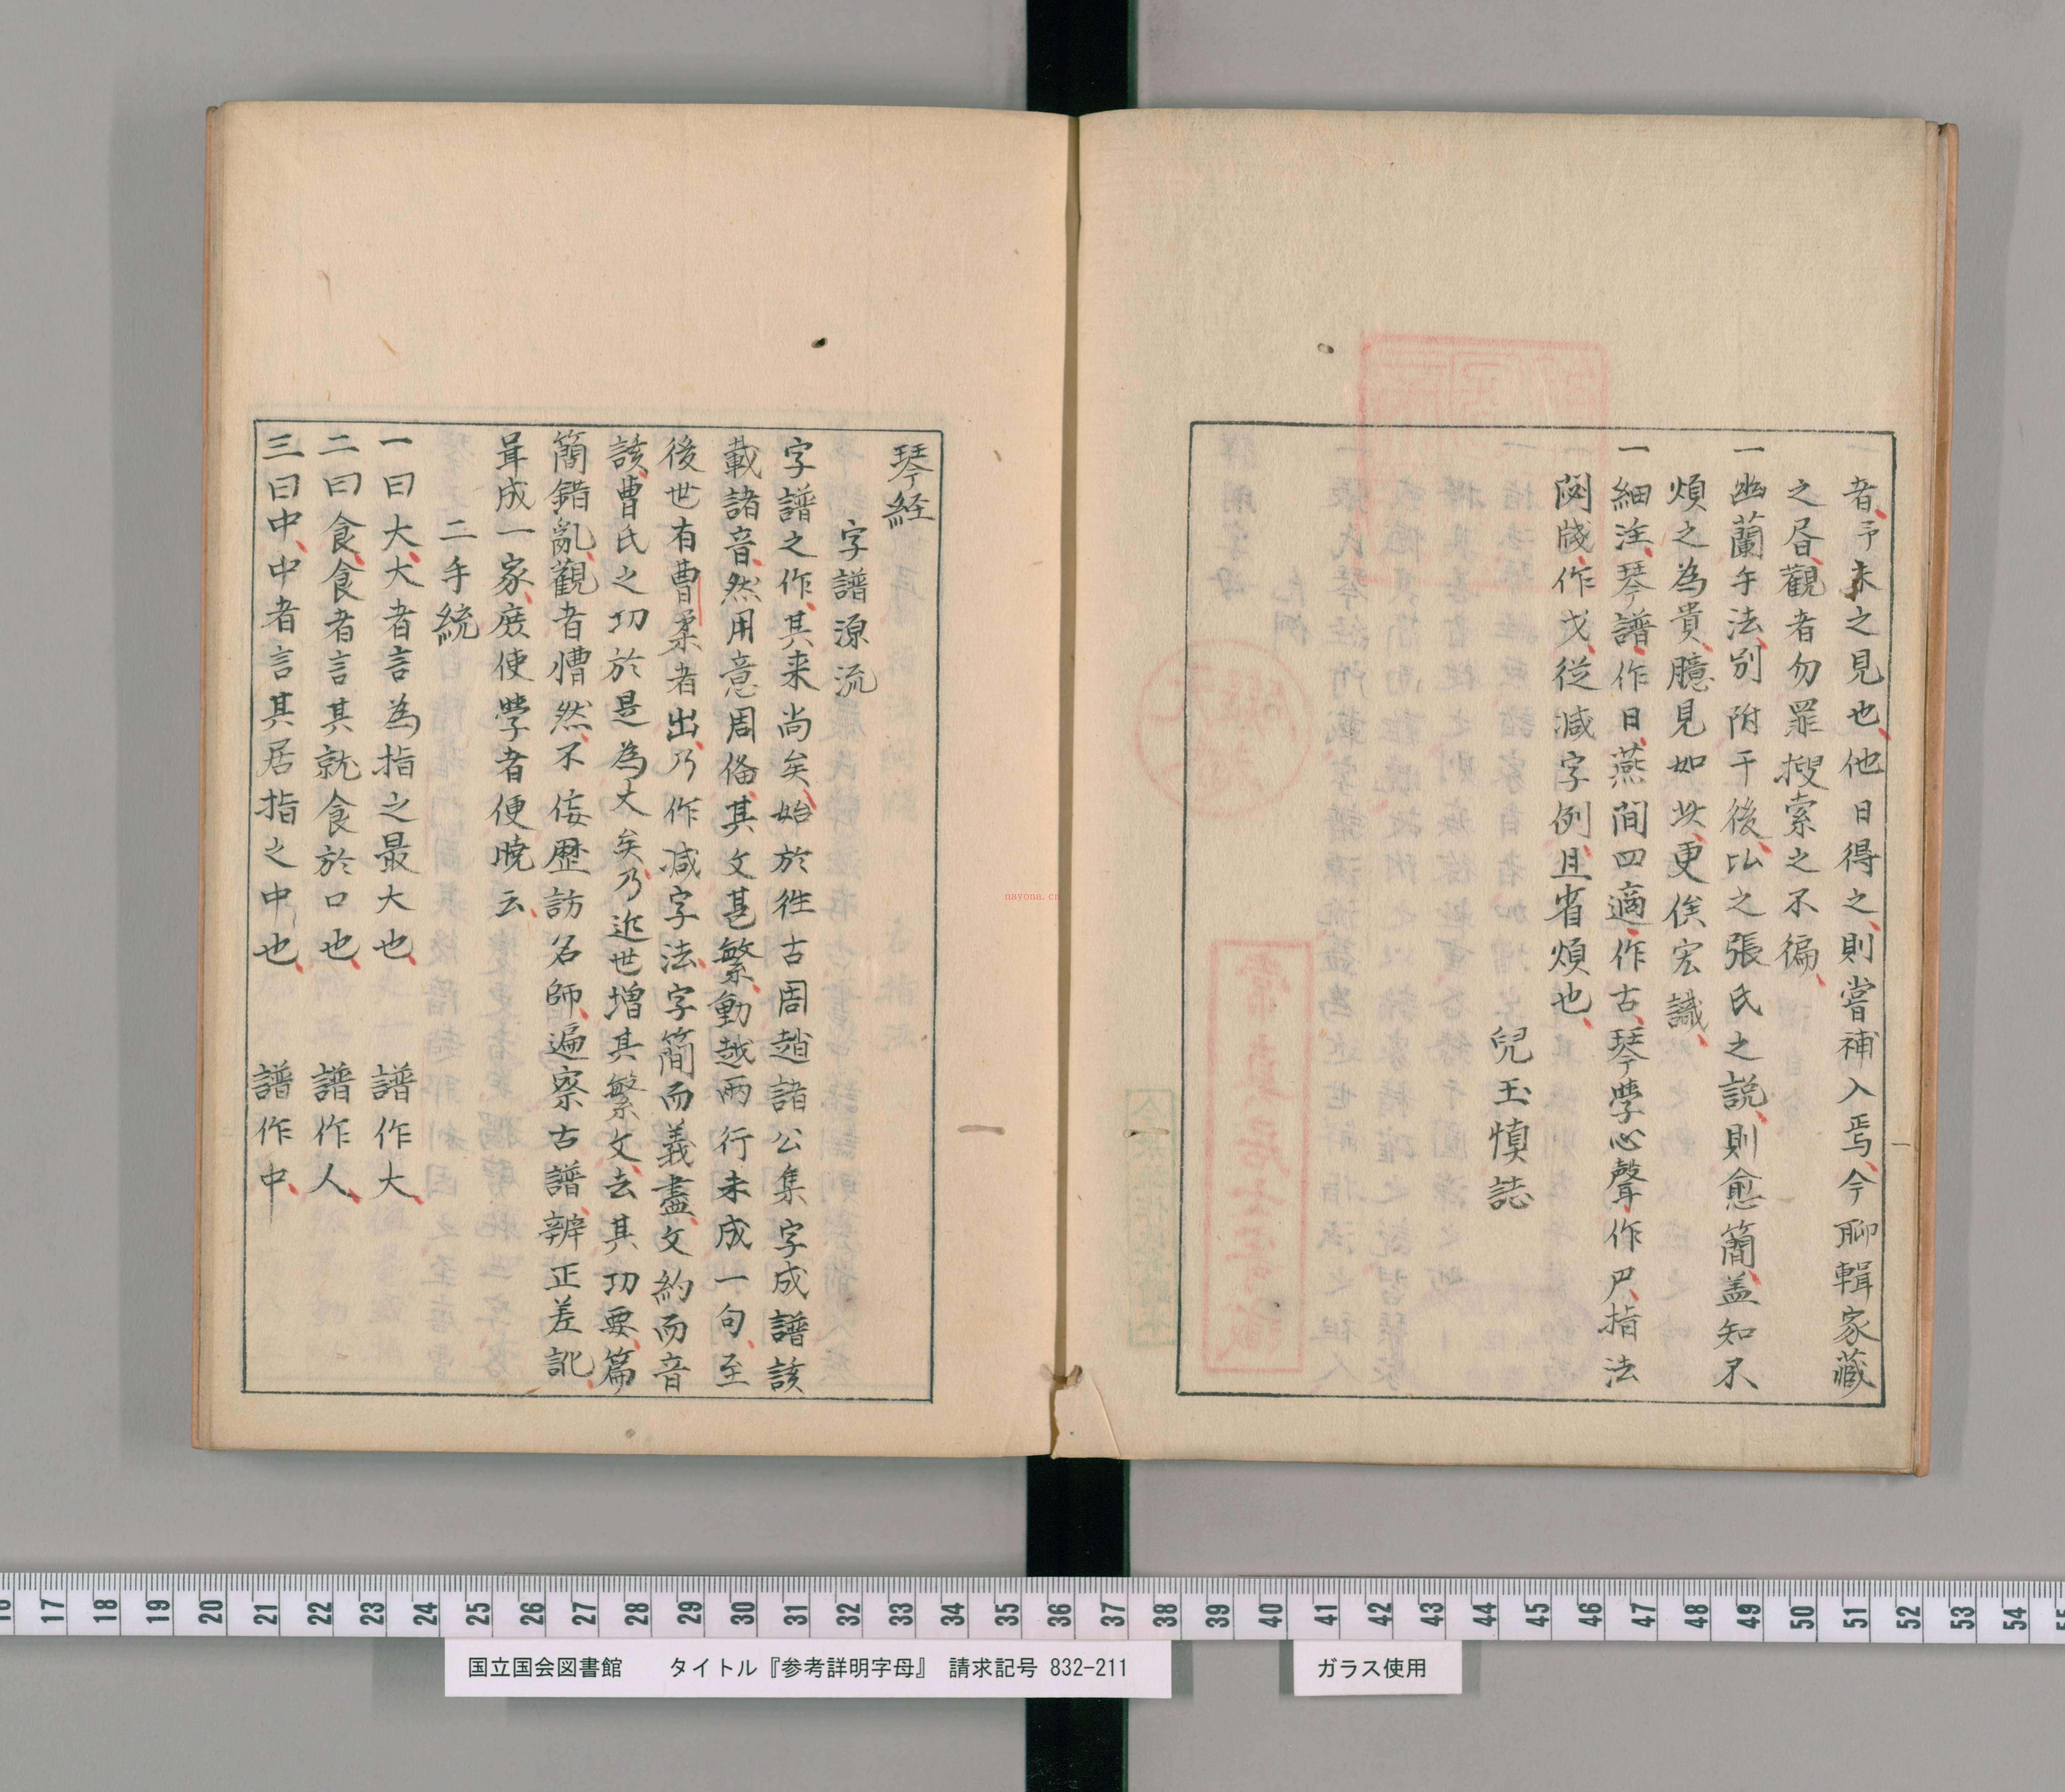 者予未之見也他日得之則嘗補入焉今聊輯家藏
之昏觀者勿罪搜索之不徧
一幽蘭手法別附于後比之張氏之説則愈簡盖知不
煩之為貴臆見如此更俟宏識
一細注琴譜作日燕間四適作古琴學心聲作尸指法
閟牋作戈從減字例且省煩也
兒玉慎誌
琴経
字譜源流
字譜之作其来尚矣始於徃古周趙諸公集字成譜該
載諸音然用意周俻其文甚繁動越兩行未成一句至
後世有曹柔者出乃作减字法字簡而義盡文約而音
該曹氏之功於是為大矣乃近世增其繁文去其切要篇
簡錯亂觀者懵然不侫歴訪名師遍察古譜辨正差訛
茸成一家庻使學者便曉云
二手統
一曰大大者言為指之最大也 譜作大
二曰食食者言其就食於口也 譜作人
三曰中中者言其居指之中也 譜作中
nayona.cn
16 17 18 19 20 21 22 23 24 25 26 27 28 29 30 31 32 33 34 35 36 37 38 39 40 41 42 43 44 45 46 47 48 49 50 51 52 53 54 55
国立国会図書館 タイトル『参考詳明字母』 請求記号 832-211
ガラス使用